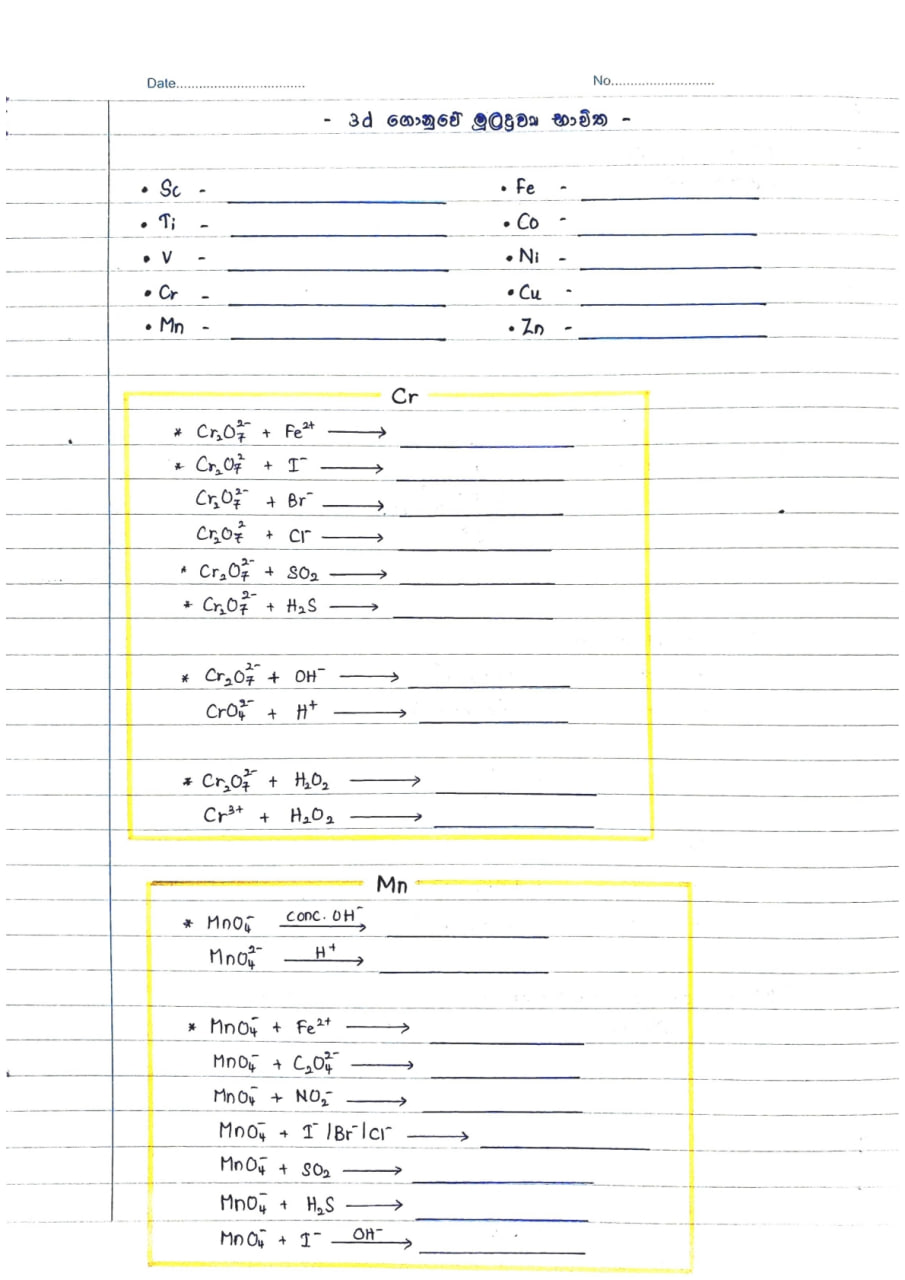 Date................................ No............................
- 3d ගොනුවේ මූලද්‍රව්‍ය භාවිත -
• Sc - • Fe -
• Ti - • Co -
• V - • Ni -
• Cr - • Cu -
• Mn - • Zn -
Cr
* Cr₂O₇²⁻ + Fe²⁺ ⟶
* Cr₂O₇² + I⁻ ⟶
Cr₂O₇²⁻ + Br⁻ ⟶
Cr₂O₇² + Cl⁻ ⟶
* Cr₂O₇²⁻ + SO₂ ⟶
* Cr₂O₇²⁻ + H₂S ⟶
* Cr₂O₇²⁻ + OH⁻ ⟶
CrO₄²⁻ + H⁺ ⟶
* Cr₂O₇²⁻ + H₂O₂ ⟶
Cr³⁺ + H₂O₂ ⟶
Mn
* MnO₄⁻ conc. OH⁻ ⟶
MnO₄²⁻ H⁺ ⟶
* MnO₄⁻ + Fe²⁺ ⟶
MnO₄⁻ + C₂O₄²⁻ ⟶
MnO₄⁻ + NO₂⁻ ⟶
MnO₄⁻ + I⁻ / Br⁻ / Cl⁻ ⟶
MnO₄⁻ + SO₂ ⟶
MnO₄⁻ + H₂S ⟶
MnO₄⁻ + I⁻ OH⁻ ⟶